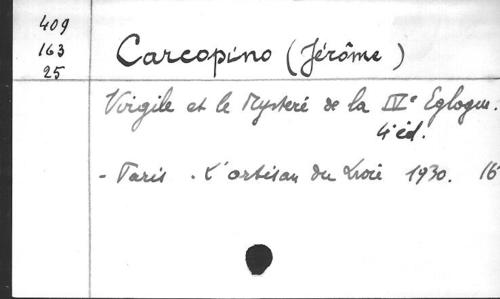 409
163
25
Carcopino (Jérôme)
Virgile et le Mystère de la IVe Eglogue.
4e éd.
- Paris. L'artisan du Livre 1930. 16